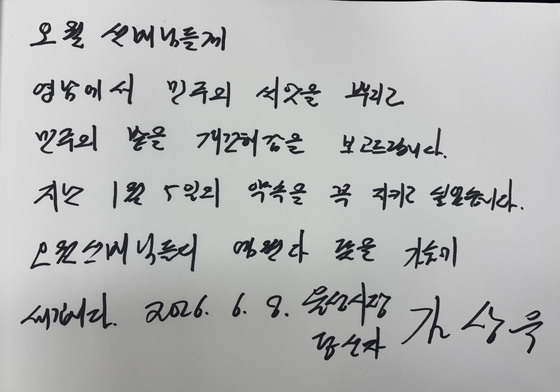 오월 선배님들께
영남에서 민주의 씨앗을 뿌리고
민주의 밭을 개간해감을 보고드립니다.
지난 1월 5일의 약속을 꼭 지키고 싶었습니다.
오월선배님들의 영원한 뜻을 가슴에
새깁니다. 2026. 6. 8. 울산시장
당선자 김상욱